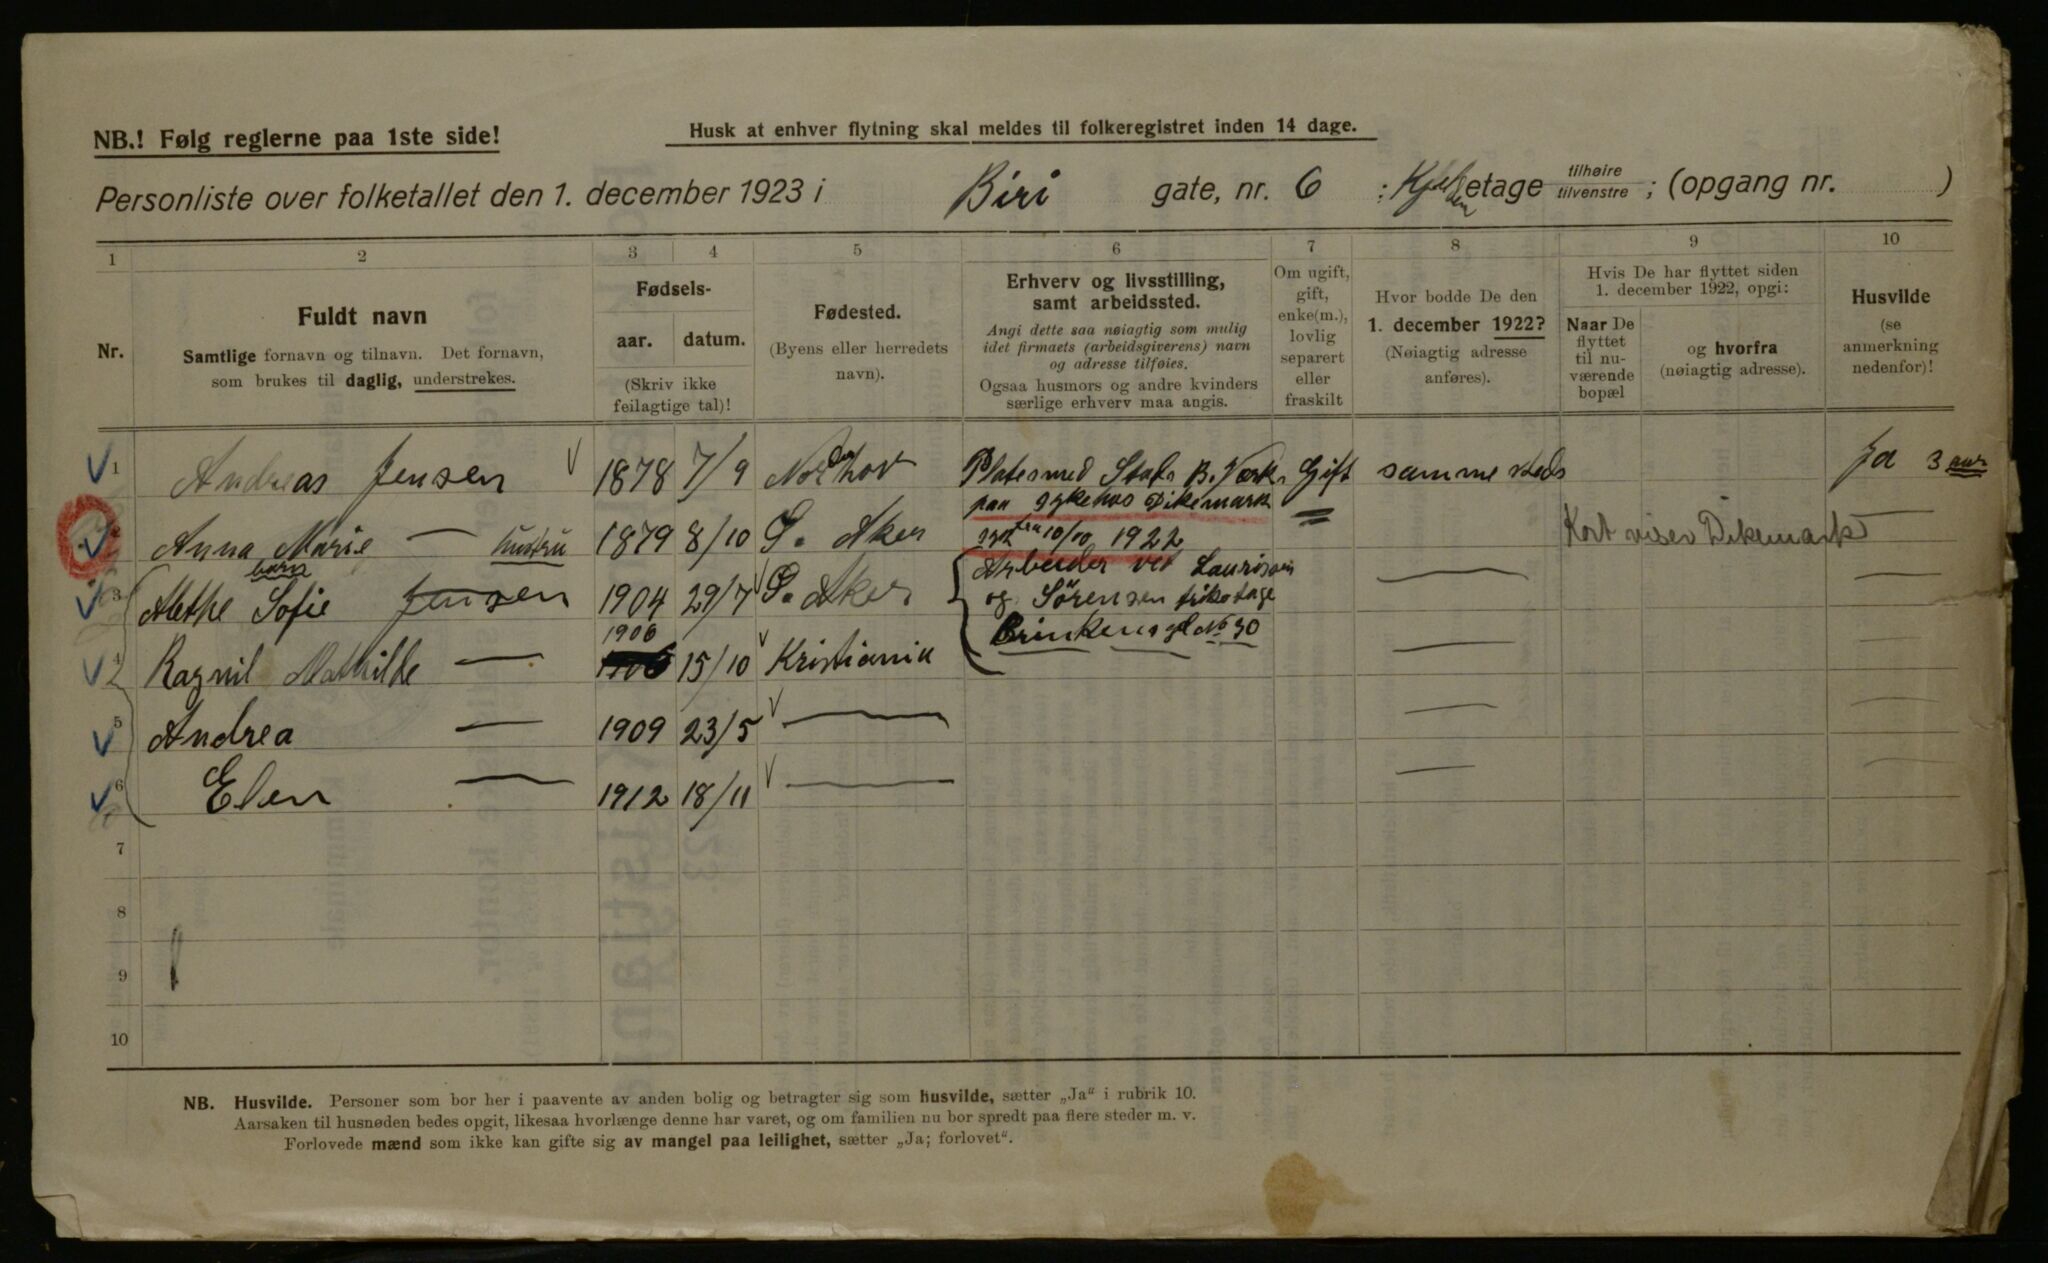 NB.! Følg reglerne paa 1ste side!
Husk at enhver flytning skal meldes til folkeregistret inden 14 dage.
Personliste over folketallet den 1. december 1923 i Biri gate, nr. 6 : Kjelderetage tilhøire tilvenstre ; (opgang nr. )
1 2 3 4 5 6 7 8 9 10
Nr.
Fuldt navn
Samtlige fornavn og tilnavn. Det fornavn,
som brukes til daglig, understrekes.
Fødsels-
aar. datum.
(Skriv ikke
feilagtige tal)!
Fødested.
(Byens eller herredets
navn).
Erhverv og livsstilling,
samt arbeidssted.
Angi dette saa nøiagtig som mulig
idet firmaets (arbeidsgiverens) navn
og adresse tilføies.
Ogsaa husmors og andre kvinders
særlige erhverv maa angis.
Om ugift,
gift,
enke(m.),
lovlig
separert
eller
fraskilt
Hvor bodde De den
1. december 1922?
(Nøiagtig adresse
anføres).
Hvis De har flyttet siden
1. december 1922, opgi:
Naar De
flyttet
til nu-
værende
bopæl
og hvorfra
(nøiagtig adresse).
Husvilde
(se
anmerkning
nedenfor)!
1 Andreas Jensen 1878 7/9 Norderhov Platesmed Stats B. Værk. Gift samme steds Ja 3 aar
paa sykehus Dikemark
2 Anna Marie — hustru 1879 8/10 S. Aker fra 10/10 1922 Kort viser Dikemark —
barn
3 Alethe Sofie Jensen 1904 29/7 S. Aker Arbeider ved Laurisen — —
og Sörensen trikotage
1906 Brinkens gt No 30
4 Ragnil Mathilde — 15/10 Kristiania — —
5 Andrea — 1909 23/5 — — —
6 Elen — 1912 18/11 — — —
7
8
9
10
NB. Husvilde. Personer som bor her i paavente av anden bolig og betragter sig som husvilde, sætter „Ja“ i rubrik 10.
Aarsaken til husnøden bedes opgit, likesaa hvorlænge denne har varet, og om familien nu bor spredt paa flere steder m. v.
Forlovede mænd som ikke kan gifte sig av mangel paa leilighet, sætter „Ja; forlovet“.